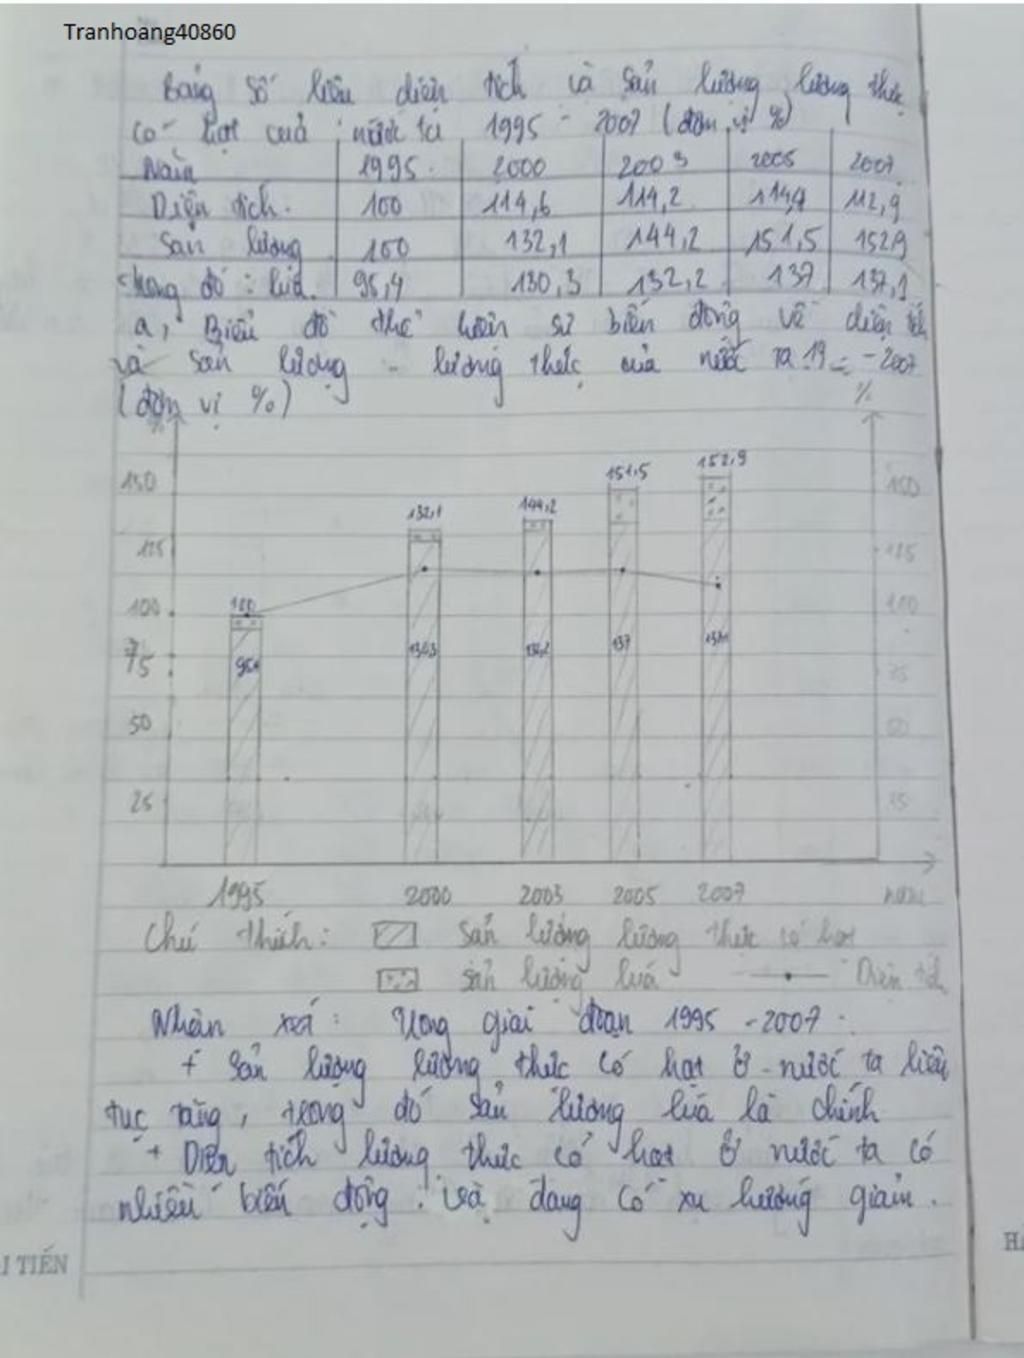 Tranhoang40860
Bảng số liệu diện tích và sản lượng lương thực
có hạt của nước ta 1995 - 2007 (đơn vị %)
Năm 1995 2000 2003 2005 2007
Diện tích. 100 114,6 114,2 112,9
Sản lượng 100 132,1 144,2 151,5 152,9
trong đó : lúa. 95,4 130,3 132,2 137 137,1
a, Biểu đồ thể hiện sự biến động về diện tích
và sản lượng - lương thực của nước ta -2007
(đơn vị %)
% %
150 151,5 152,9 150
132,1 144,2
125 125
100 100 100
75 137 75
50 50
25 25
1995 2000 2003 2005 2007 năm
Chú thích: Sản lượng lương thực có hạt
Sản lượng lúa Diện tích
Nhận xét: Trong giai đoạn 1995 - 2007 :
+ Sản lượng lương thực có hạt ở nước ta liên
tục tăng, trong đó sản lượng lúa là chính
+ Diện tích lương thực có hạt ở nước ta có
nhiều biến động. và đang có xu hướng giảm.
I TIẾN